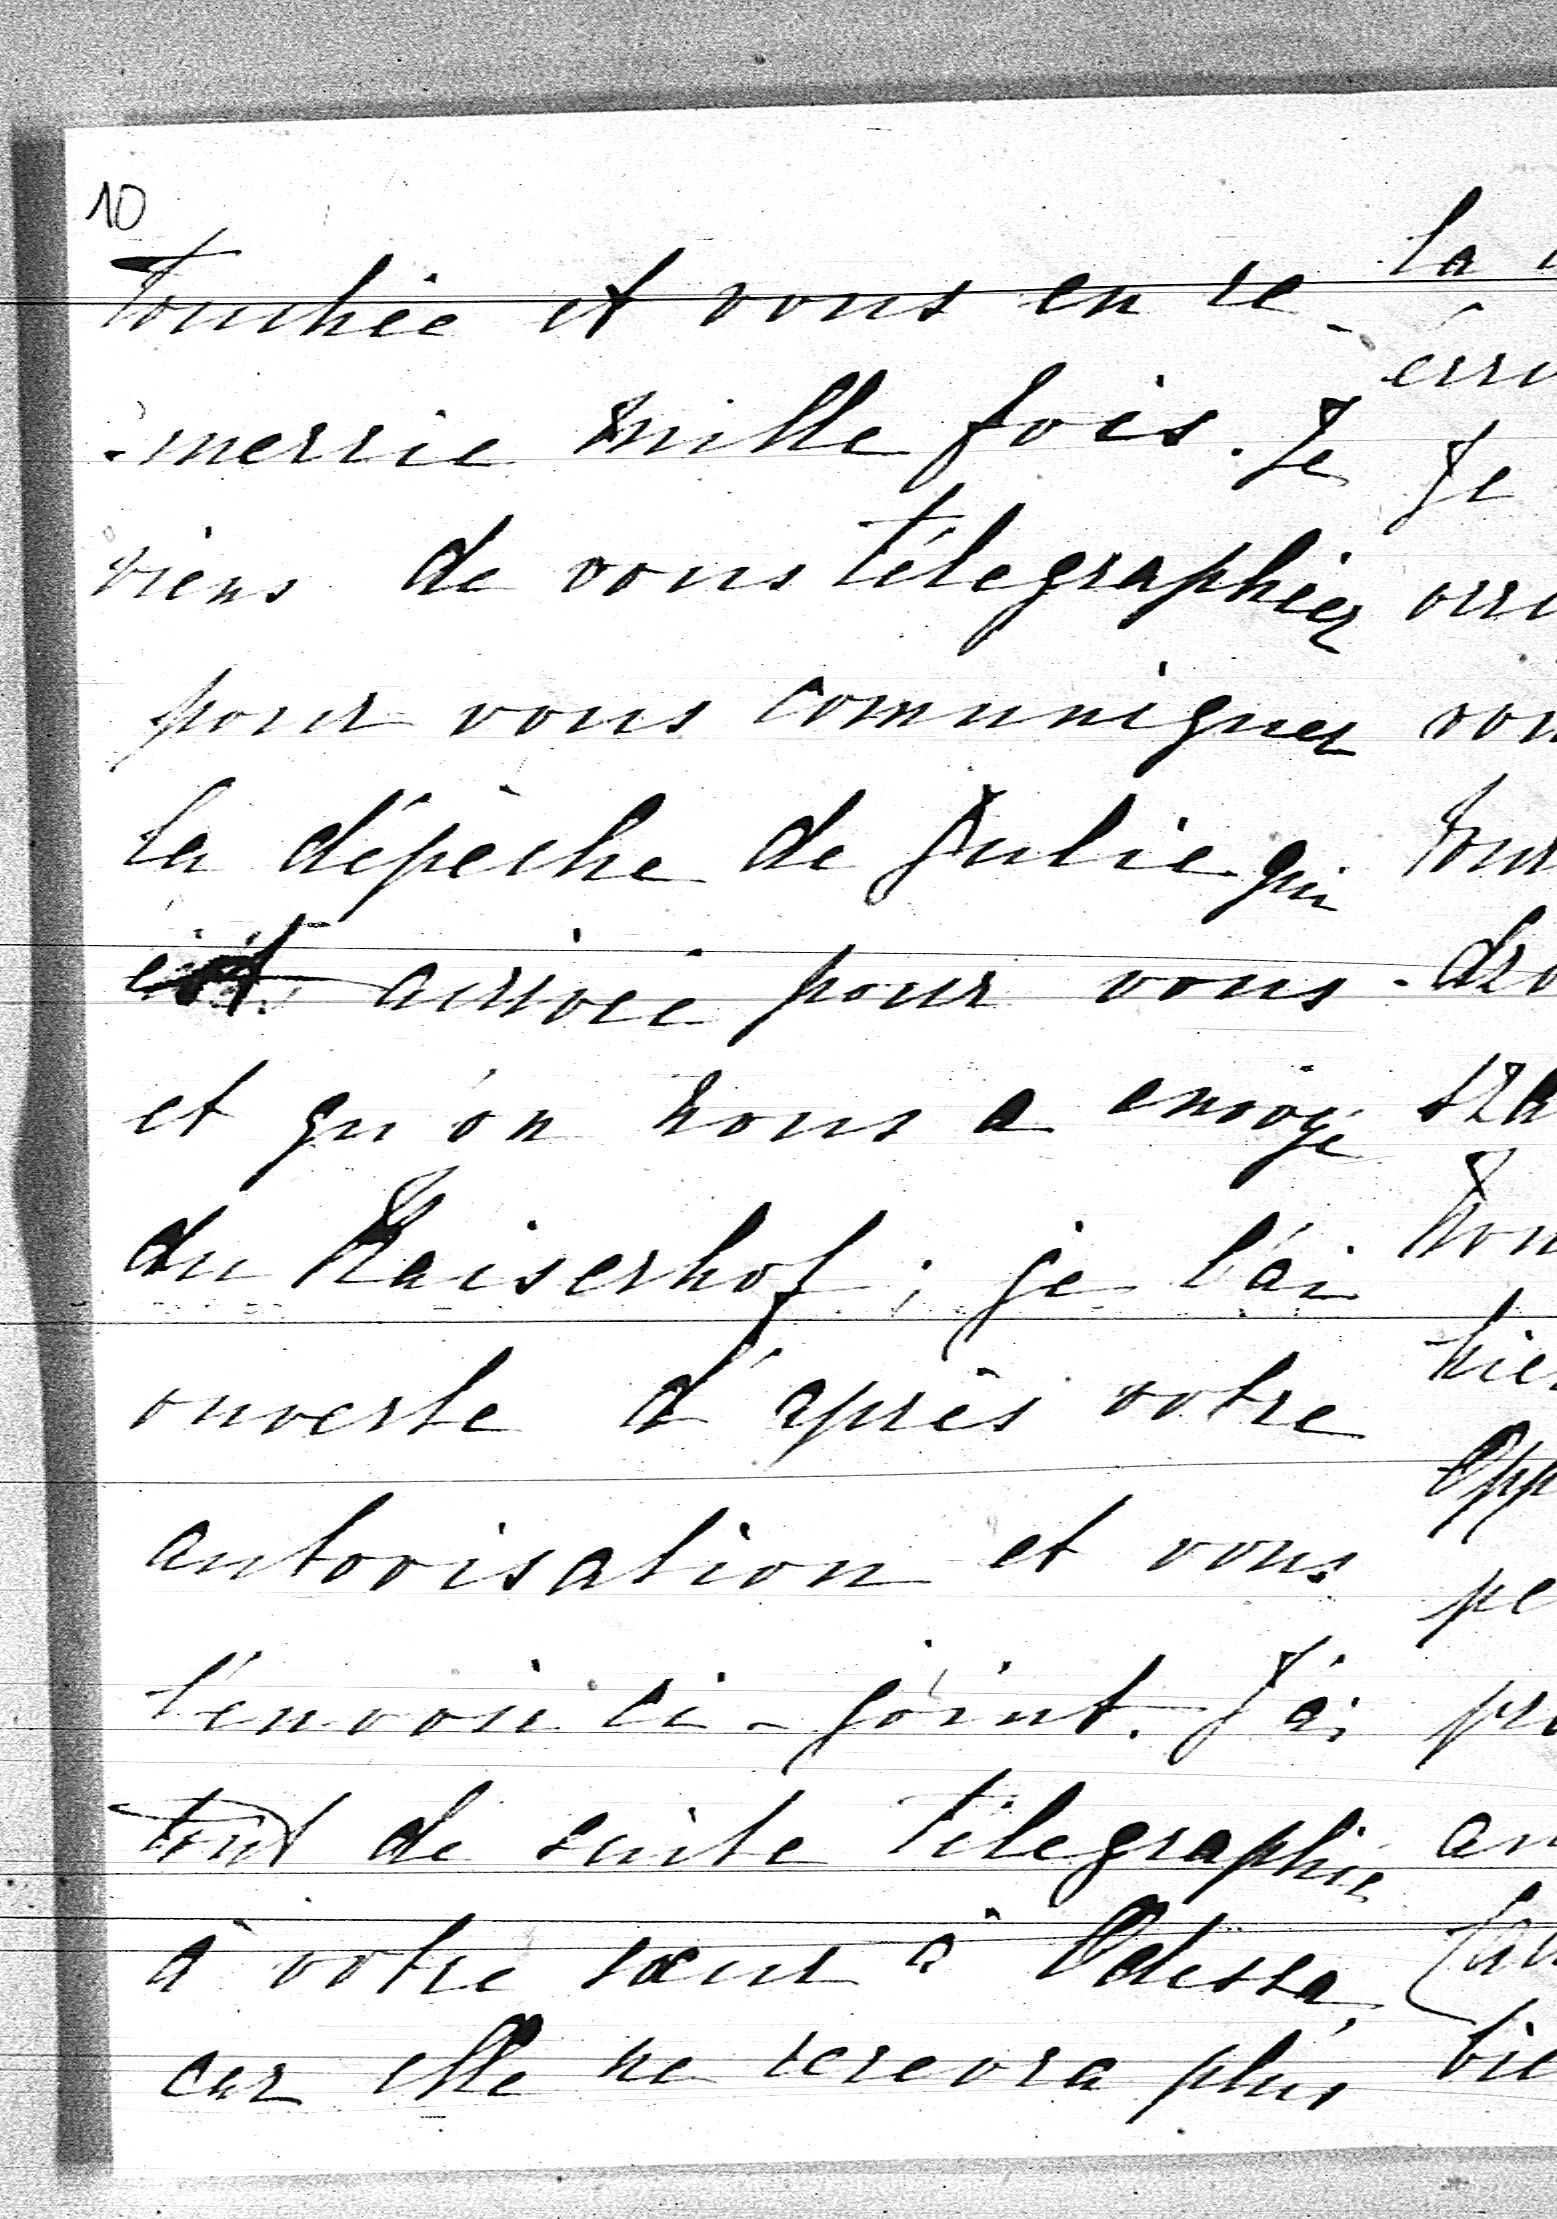 10
touchée et vous en re-
-mercie mille fois. Je
viens de vous télégraphier
pour vous comuniquer
la dépêche de Julie qui
est arrivée pour vous
et qu'on nous a envoyé
du Kaiserhof; je l'ai
ouverte d'après votre
autorisation et vous
l'envoie ci-joint. J'ai
tout de suite télégraphié
à votre sœur à Odessa,
car elle ne recevra plus
la
Je
pe